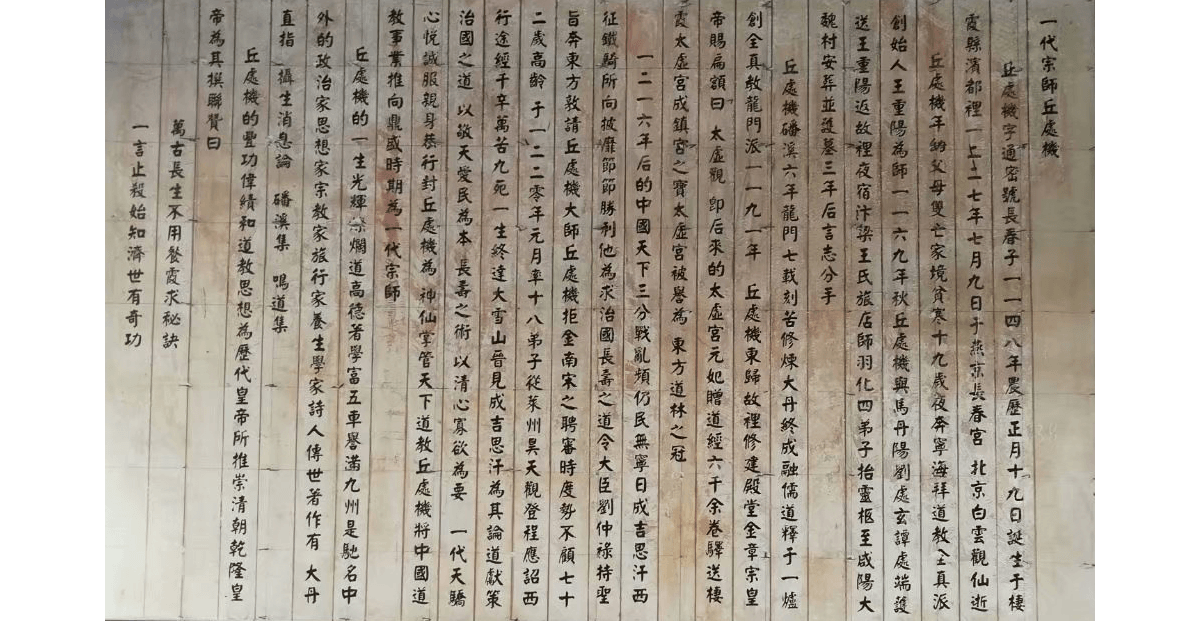 一代宗師丘處機
丘處機字通密號長春子一一四八年農歷正月十九日誕生于棲
霞縣濱都裡一二二七年七月九日于燕京長春宮 北京白雲觀仙逝
丘處機年幼父母雙亡家境貧寒十九歲夜奔寧海拜道教全真派
創始人王重陽為師一一六九年秋丘處機與馬丹陽劉處玄譚處端護
送王重陽返故裡夜宿汴梁王氏旅店師羽化四弟子抬靈柩至咸陽大
魏村安葬並護墓三年后言志分手
丘處機磻溪六年龍門七載刻苦修煉大丹終成融儒道釋于一爐
創全真教龍門派一一九一年 丘處機東歸故裡修建殿堂金章宗皇
帝賜扁額曰 太虛觀 即后來的太虛宮元妃贈道經六千余卷驛送棲
霞太虛宮成鎮宮之寶太虛宮被譽為 東方道林之冠
一二一六年后的中國天下三分戰亂頻仍民無寧日成吉思汗西
征鐵騎所向披靡節節勝利他為求治國長壽之道令大臣劉仲祿持聖
旨奔東方敦請丘處機大師丘處機拒金南宋之聘審時度勢不顧七十
二歲高齡 于一二二零年元月率十八弟子從萊州昊天觀登程應詔西
行途經千辛萬苦九死一生終達大雪山晉見成吉思汗為其論道獻策
治國之道 以敬天愛民為本 長壽之術 以清心寡欲為要 一代天驕
心悅誠服親身恭行封丘處機為 神仙掌管天下道教丘處機將中國道
教事業推向鼎盛時期為一代宗師
丘處機的一生光輝燦爛道高德著學富五車譽滿九州是馳名中
外的政治家思想家宗教家旅行家養生學家詩人傳世著作有 大丹
直指 攝生消息論 磻溪集 鳴道集
丘處機的豐功偉績和道教思想為歷代皇帝所推崇清朝乾隆皇
帝為其撰聯贊曰
萬古長生不用餐霞求秘訣
一言止殺始知濟世有奇功